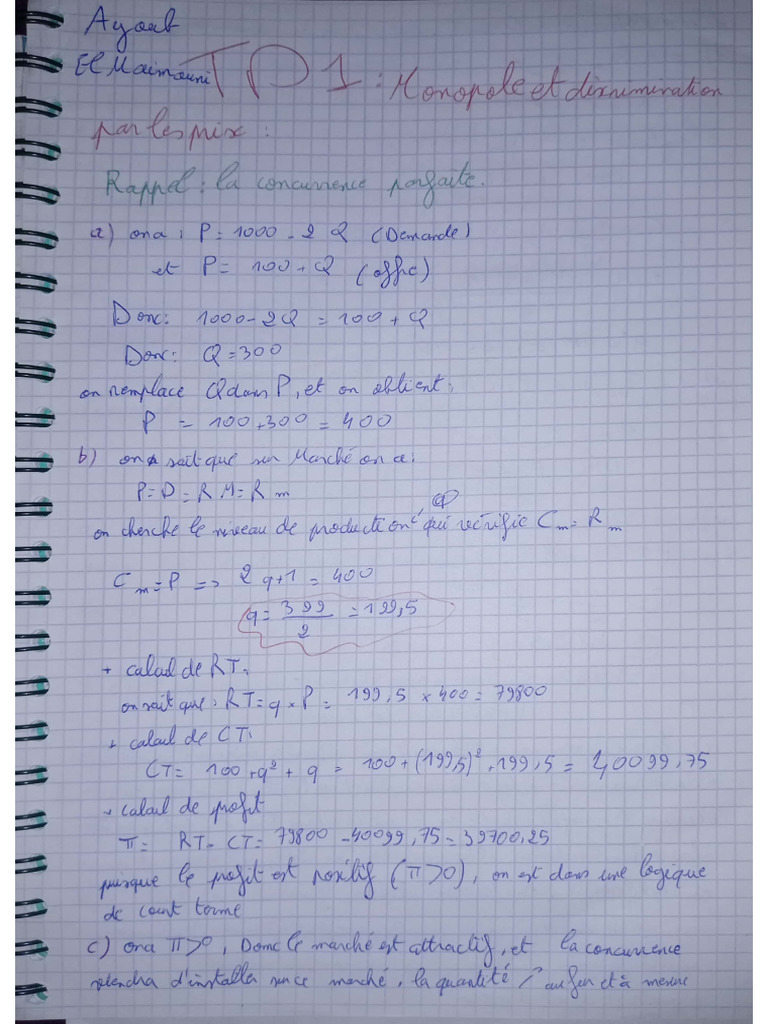 Ayoub
El Maimouni
TD1 : Monopole et discrimination
par les prix :
Rappel : la concurrence parfaite.
a) on a : P = 1000 - 2 Q (Demande)
et P = 100 + Q (offre)
Donc : 1000 - 2Q = 100 + Q
Donc : Q = 300
on remplace Q dans P, et on obtient :
P = 100 + 300 = 400
b) on sait que sur Marché on a :
P = D = RM = Rm
on cherche le niveau de production q qui vérifie Cm = Rm
Cm = P => 2q+1 = 400
q = 399/2 = 199,5
+ calcul de RT :
on sait que : RT = q x P = 199,5 x 400 = 79800
+ calcul de CT :
CT = 100 + q² + q = 100 + (199,5)² + 199,5 = 40099,75
+ calcul de profit
π = RT - CT = 79800 - 40099,75 = 39700,25
puisque le profit est positif (π>0), on est dans une logique
de court terme
c) on a π>0, Donc le marché est attractif, et la concurrence
viendra d'installer sur ce marché, la quantité ↗ au fur et à mesure